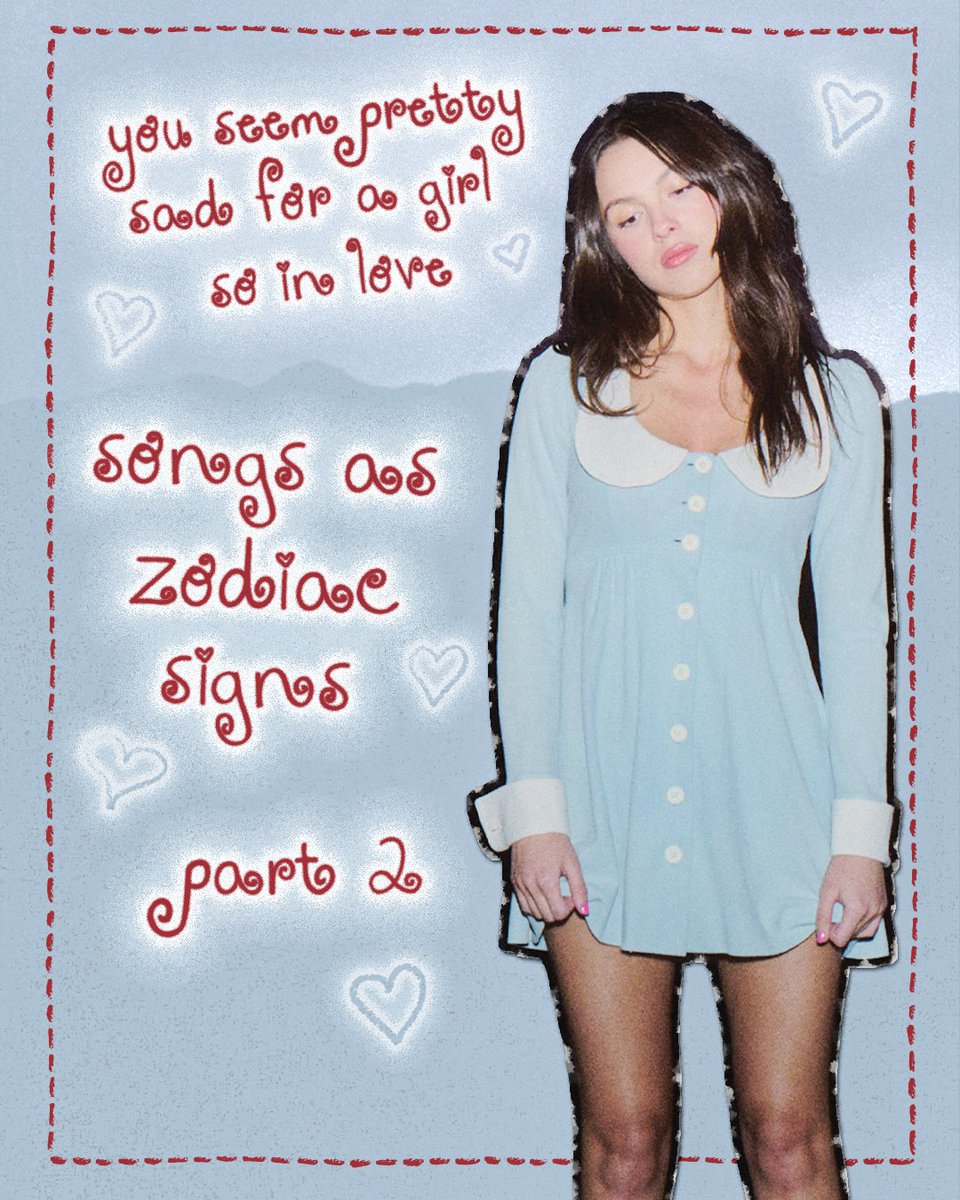 you seem pretty
sad for a girl
so in love
songs as
zodiac
signs
part 2